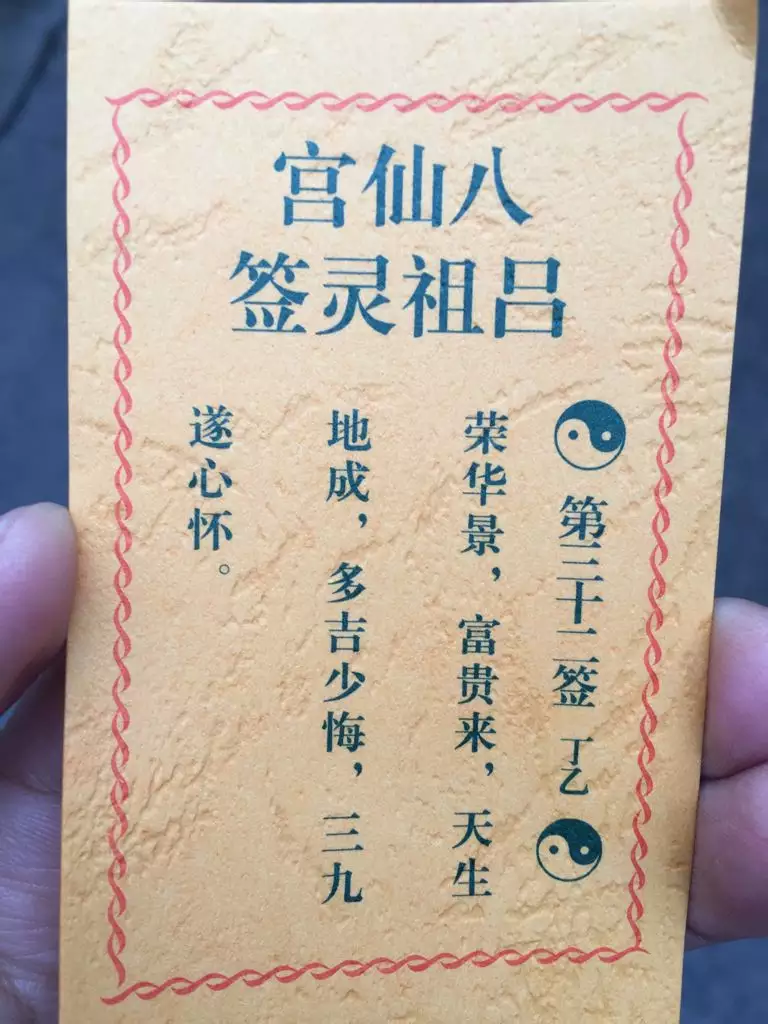 八仙宫
吕祖灵签
第三十二签 丁乙
荣华景，富贵来，天生
地成，多吉少悔，三九
遂心怀。